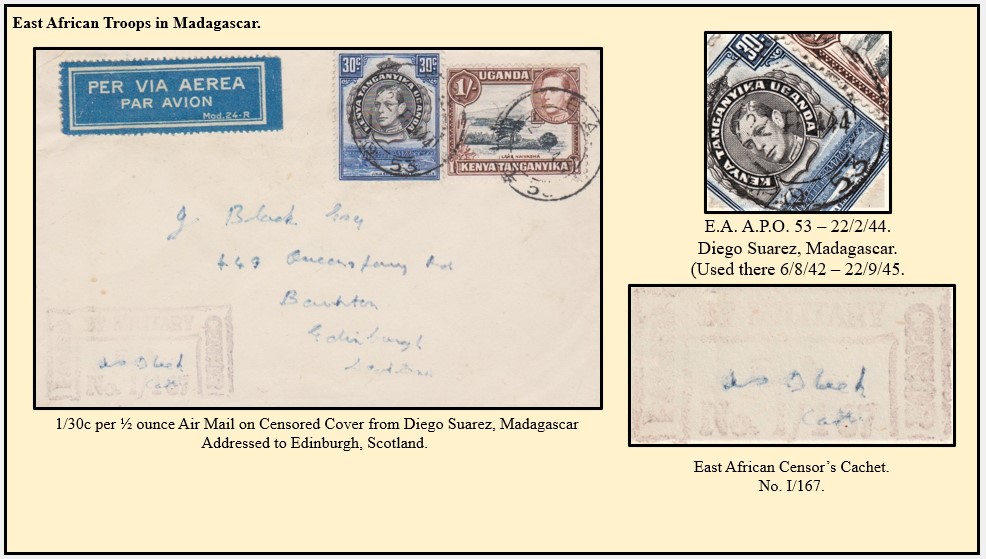 East African Troops in Madagascar.
PER VIA AEREA
PAR AVION
Mod. 24-R
30c 30c
KENYA TANGANYIKA UGANDA
53
UGANDA
1/-
LAKE NAIVASHA
KENYA TANGANYIKA
53
J. Black Esq
449 Queensferry Rd
Barnton
Edinburgh
Scotland
No I/167
1/30c per ½ ounce Air Mail on Censored Cover from Diego Suarez, Madagascar
Addressed to Edinburgh, Scotland.
30c
KENYA TANGANYIKA UGANDA
53
E.A. A.P.O. 53 – 22/2/44.
Diego Suarez, Madagascar.
(Used there 6/8/42 – 22/9/45.
East African Censor’s Cachet.
No. I/167.